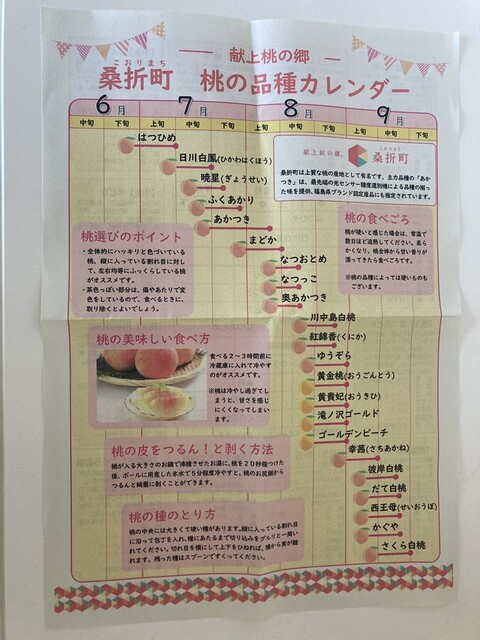 献上桃の郷
こおりまち
桑折町 桃の品種カレンダー
6月 7月 8月 9月
中旬 下旬 上旬 中旬 下旬 上旬 中旬 下旬 上旬 中旬 下旬
はつひめ
日川白鳳(ひかわはくほう)
暁星(ぎょうせい)
ふくあかり
あかつき
まどか
なつおとめ
なつっこ
奥あかつき
川中島白桃
紅錦香(くにか)
ゆうぞら
黄金桃(おうごんとう)
黄貴妃(おうきひ)
滝ノ沢ゴールド
ゴールデンピーチ
幸茜(さちあかね)
彼岸白桃
だて白桃
西王母(せいおうぼ)
かぐや
さくら白桃
献上桃の郷、
桑折町
桑折町は上質な桃の産地として有名です。主力品種の「あか
つき」は、最先端の光センサー糖度選別機による品種の揃っ
た味を提供。福島県ブランド認定産品にも指定されています。
桃の食べごろ
桃が硬いと感じた場合は、常温で
数日ほど追熟してください。柔ら
かくなり、桃全体から甘い香りが
漂ってきたら食べごろです。
※桃の品種によっては硬いものも
ございます。
桃選びのポイント
・全体的にハッキリと色づいている
桃、縦に入っている割れ目に対し
て、左右均等にふっくらしている桃
がオススメです。
・茶色っぽい部分は、傷やあたりで変
色をしているので、食べるときに、
取り除くとよいでしょう。
桃の美味しい食べ方
食べる2〜3時間前に
冷蔵庫に入れて冷やす
のがオススメです。
※桃は冷やし過ぎてし
まうと、甘さを感じ
にくくなってしまい
ます。
桃の皮をつるん!と剥く方法
桃が入る大きさのお鍋で沸騰させたお湯に、桃を20秒程つけた
後、ボールに用意した氷水で5分程度冷やすと、桃のお尻側から
つるんと綺麗に剥くことができます。
桃の種のとり方
桃の中央には大きくて硬い種があります。縦に入っている割れ目
に沿って包丁を入れ、種にあたるまで切り込みをグルリと一周い
れてください。切れ目を横にして上下をひねれば、種から実が離
れます。残った種はスプーンですくってください。